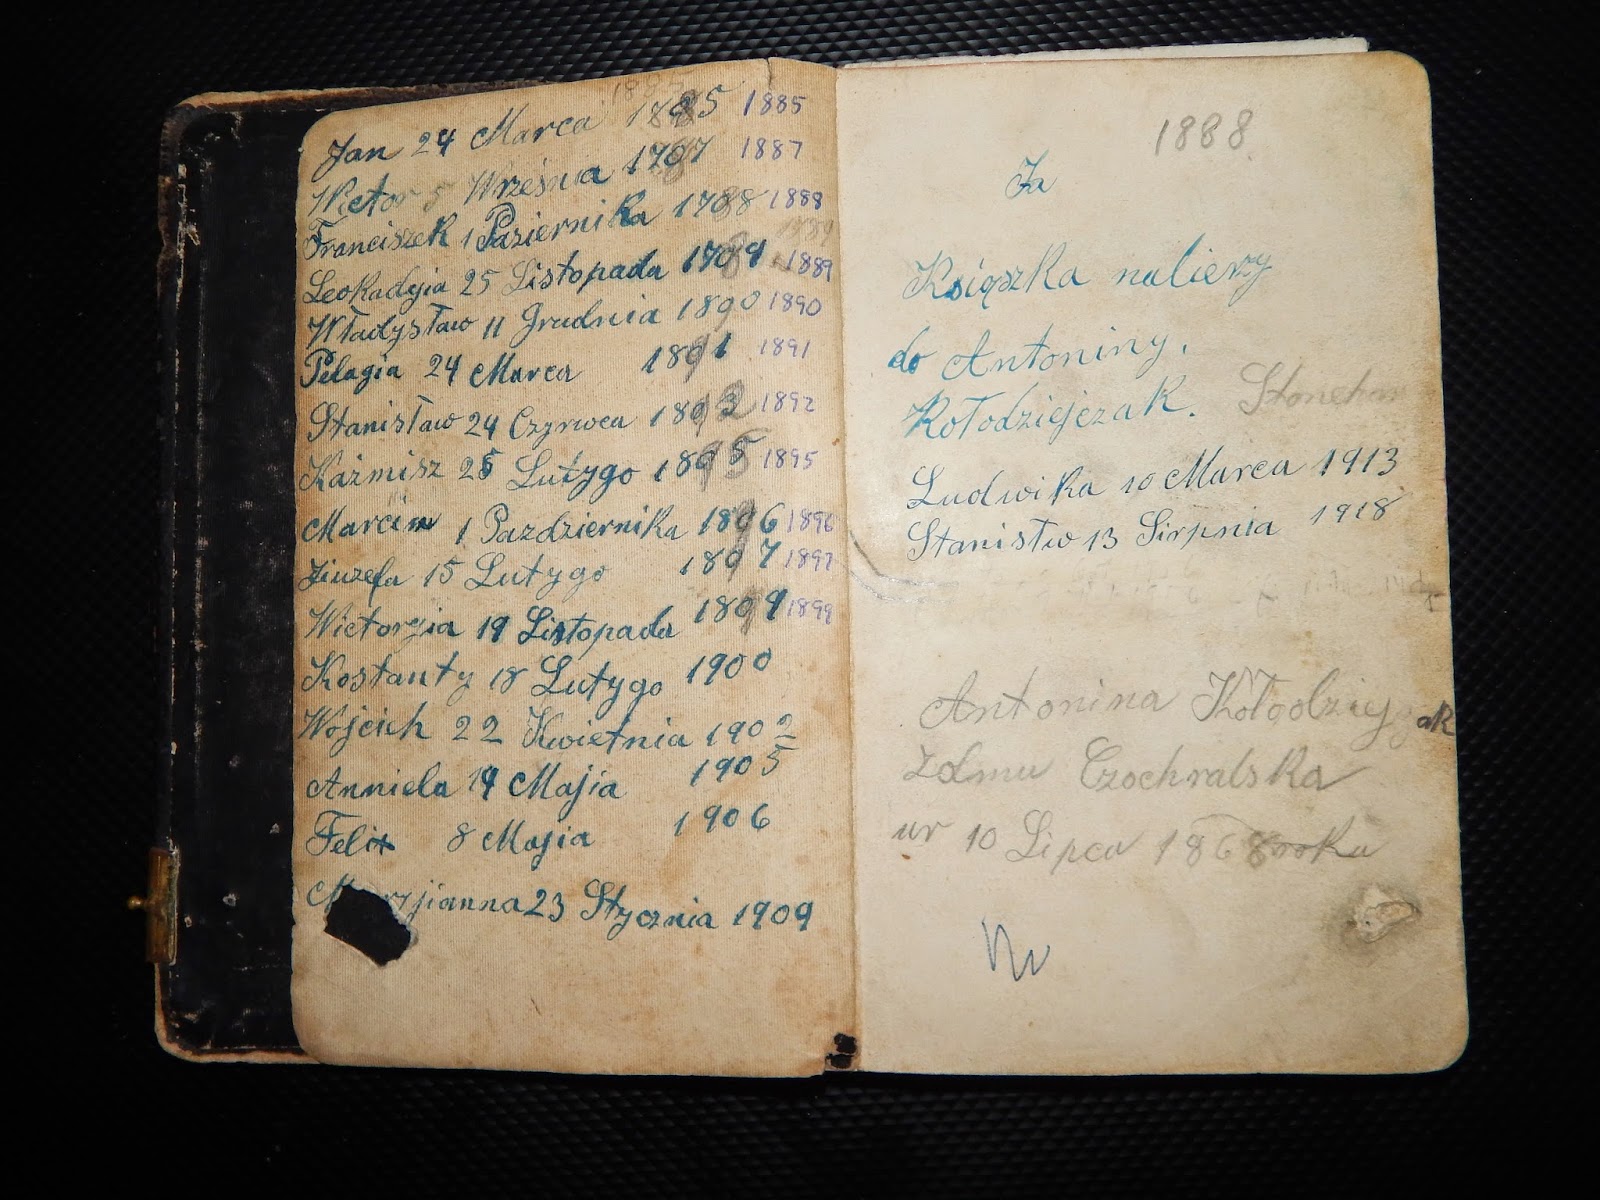 Jan 24 Marca 1885 1885
Wictor 5 Września 1787 1887
Franciszek 1 Paziernika 1788 1888
Leokadyia 25 Listopada 1789 1889
Władysław 11 Grudnia 1890 1890
Pelagia 24 Marca 1891 1891
Stanisław 24 Czyrwca 1892 1892
Kaźmisz 25 Lutygo 1895 1895
Marcin 1 Pazdziernika 1896 1896
Jiuzefa 15 Lutygo 1897 1897
Wictoryia 19 Listopada 1899 1899
Kostanty 18 Lutygo 1900
Wojcich 22 Kwietnia 1902
Anniela 14 Majia 1905
Felix 8 Majia 1906
23 Stycznia 1909
1888
Ja
Książka nalierzy
do Antoniny.
Kołodziejczak.
Ludwika 10 Marca 1913
Stanistw 13 Sirpnia 1918
Antonina Kołodziejzak
zdmu Czochralska
ur 10 Lipca 1868 roku